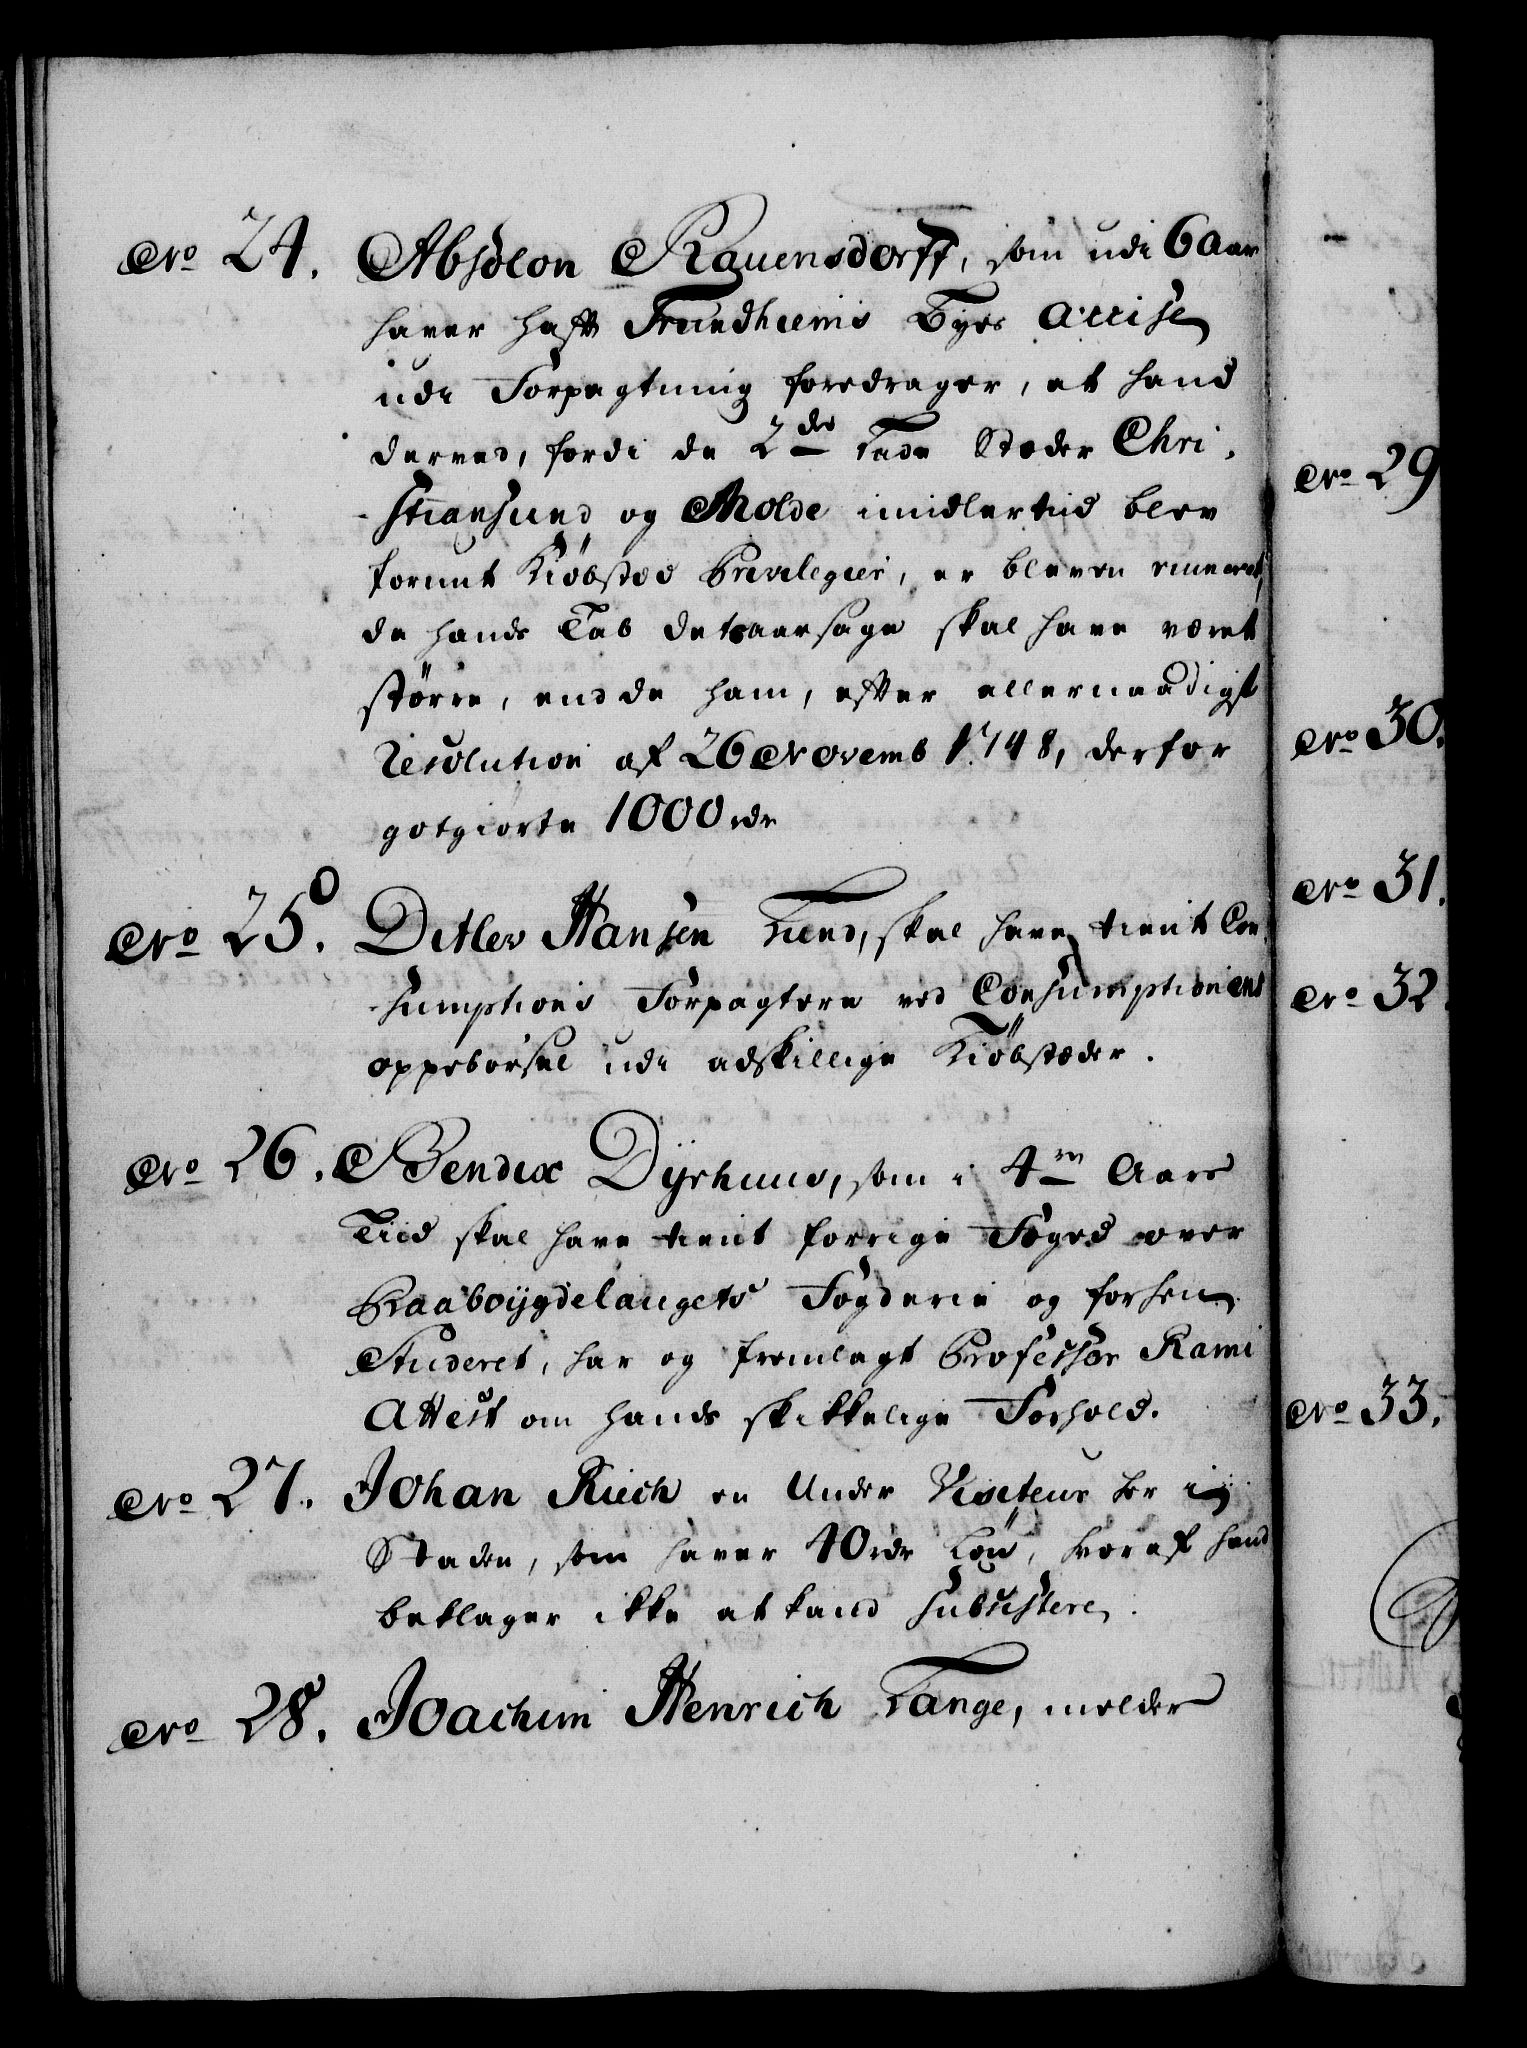 Nro 24. Absolon Rauensdorff, som udi 6 Aar
haver haft Trundhiems Byes Accise
udi Forpagtning foredrager, at hand
derved, fordi de 2de Lade Stæder Chri-
-stiansund og Molde imidlertiid blev
forunt Kiöbstæd Privilegier, er bleven ruineret,
da hands Tab detsaarsage skal have været
större, end de ham, efter allernaadigst
Resolution af 26 Novemb 1748, derfor
gotgiorte 1000 rdr
Nro 25. Ditlev Hansen Lund, skal have tient Con-
-sumptions Forpagtere ved Consumptionens
oppebörsel udi adskillige Kiöbstæder.
Nro 26. Bendix Dÿrhuus, som i 4re Aars
Tiid skal have tient forrige Foged over
Raaboÿgdelaugets Fogderie og forhen
Studeret, har og fremlagt Professor Rami
Attest om hands skikkelige Forhold.
Nro 27. Johan Riech en Under Visiteur her i
Staden, som haver 40 rdr Lön, hvoraf hand
beklager ikke at kand subsistere.
Nro 28. Joachim Henrich Lange, melder
Nro 29
Nro 30.
Nro 31.
Nro 32.
Nro 33.